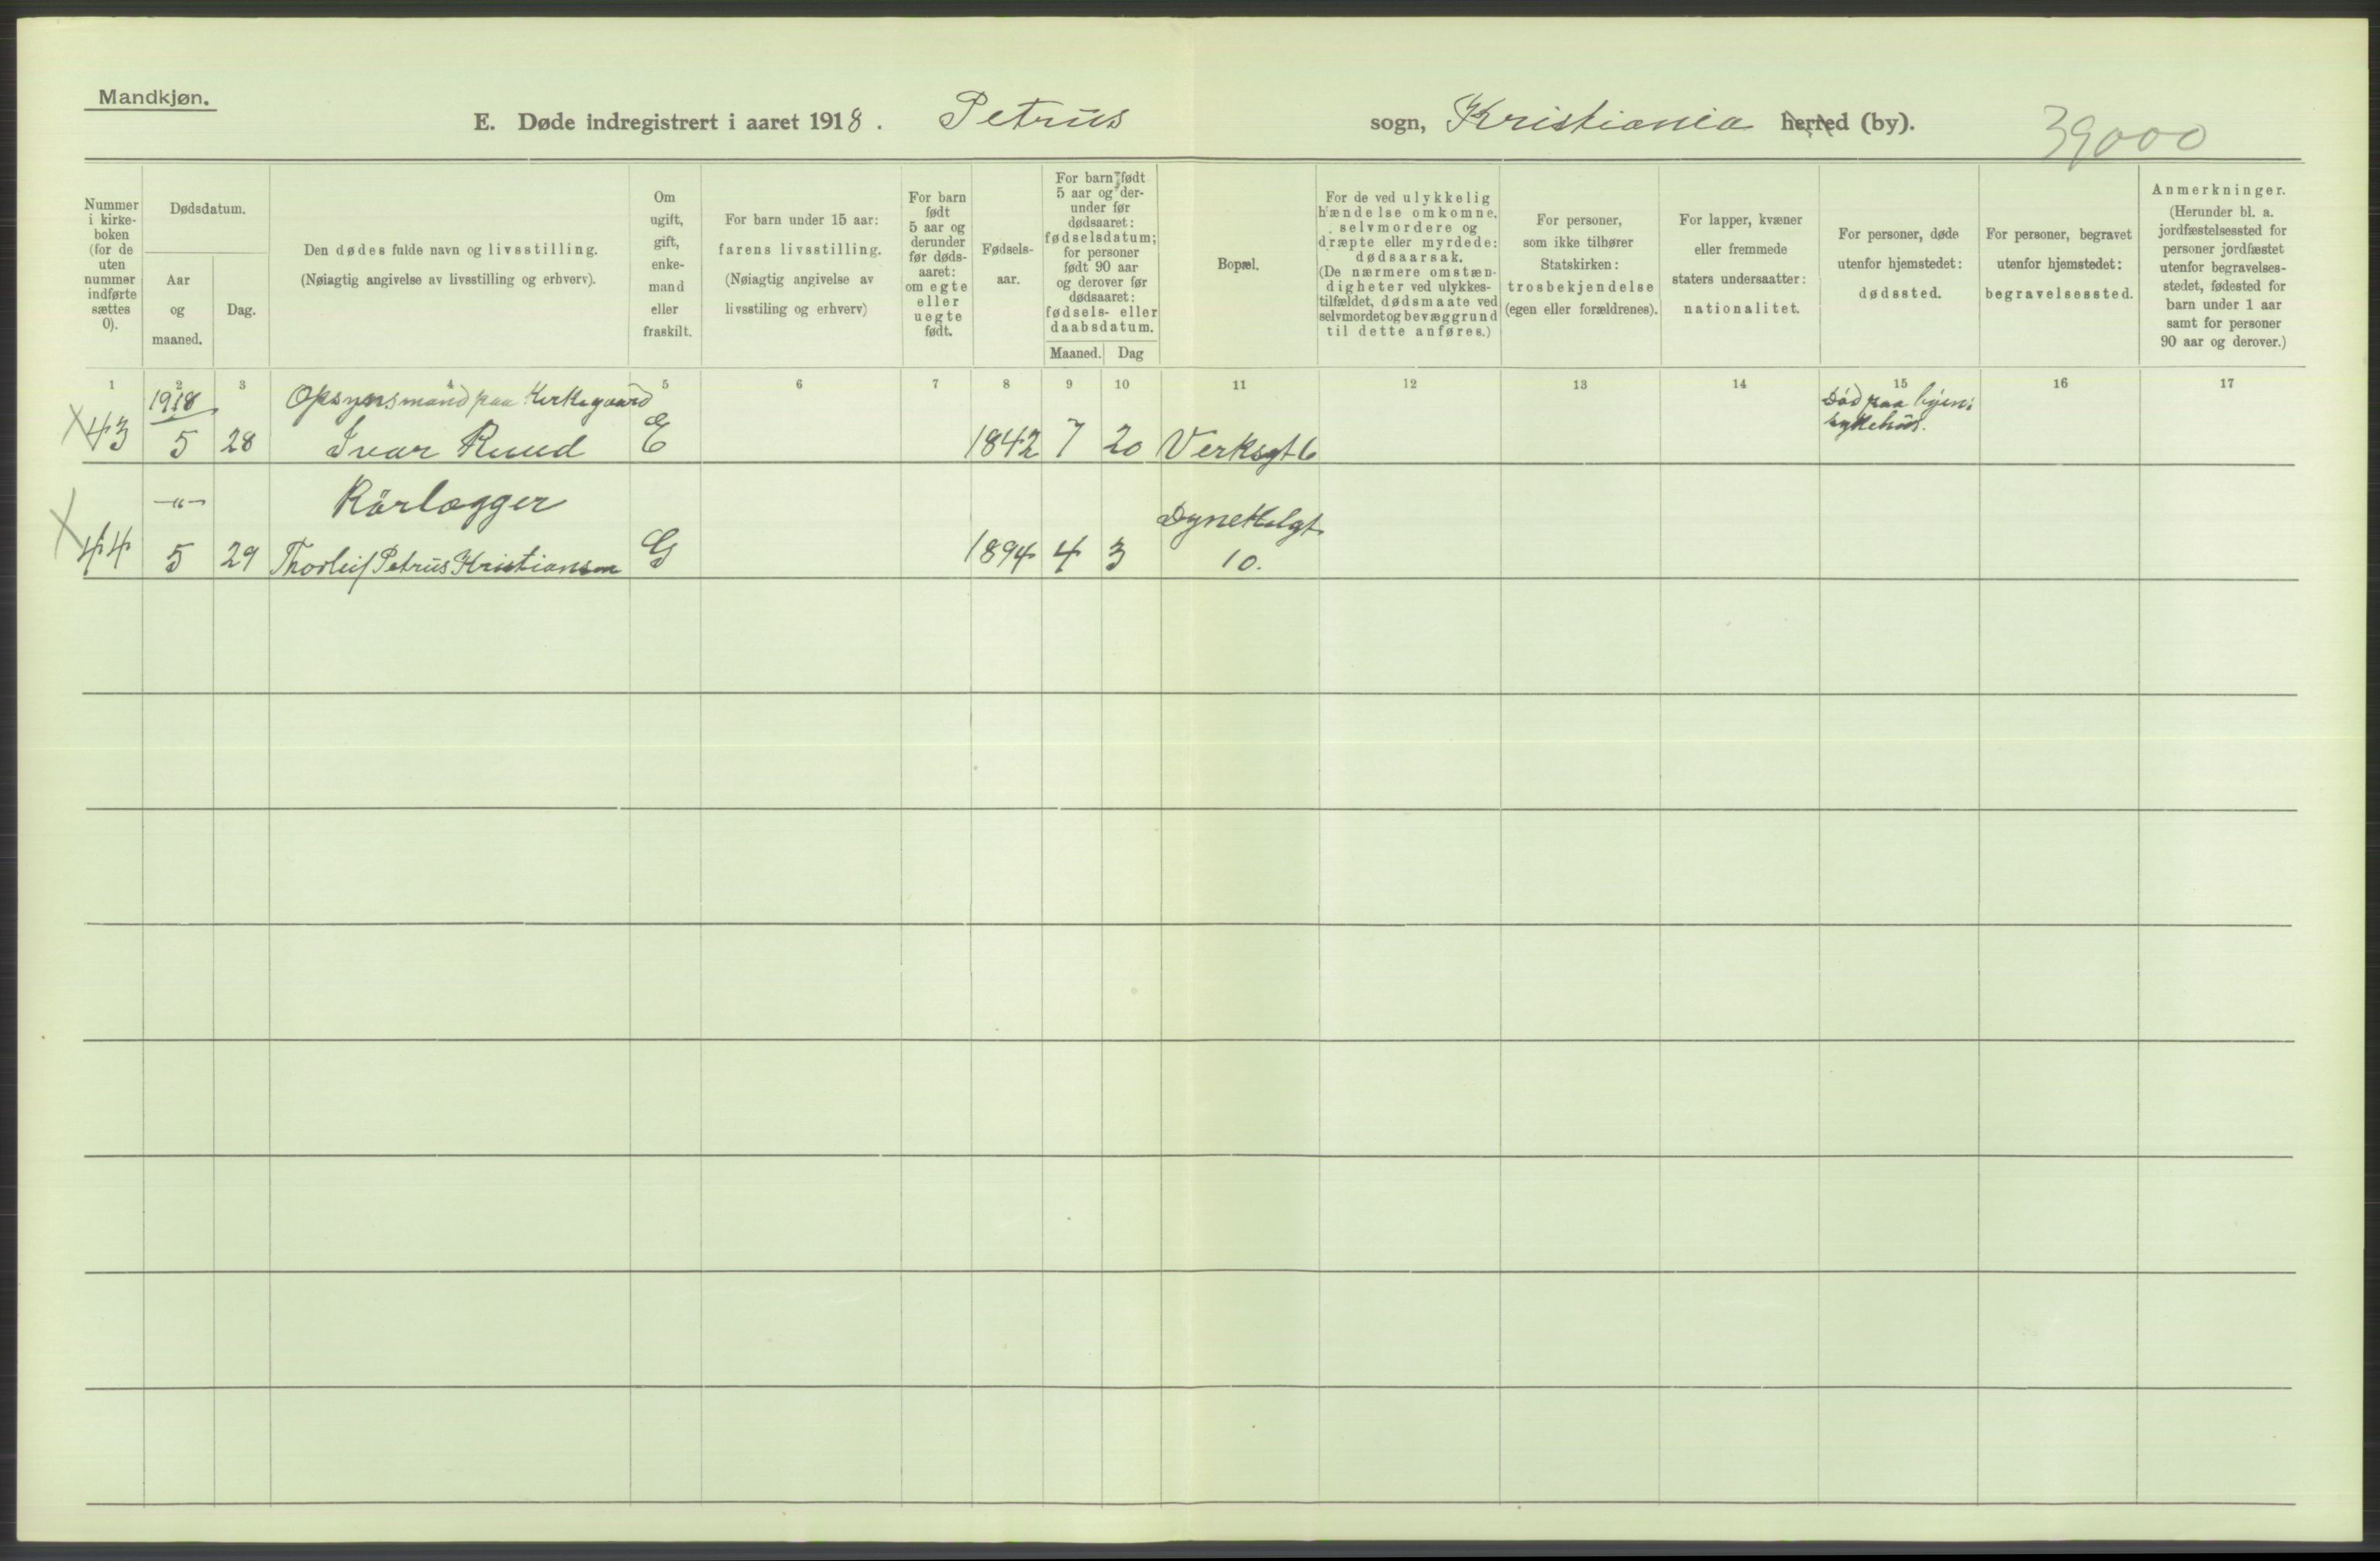 Mandkjøn.
E. Døde indregistrert i aaret 1918. Petrus sogn, Kristiania herred (by). 39000
Nummer
i kirke-
boken
(for de
uten
nummer
indførte
sættes
0).
Dødsdatum.
Aar
og
maaned.
Dag.
Den dødes fulde navn og livsstilling.
(Nøiagtig angivelse av livsstilling og erhverv).
Om
ugift,
gift,
enke-
mand
eller
fraskilt.
For barn under 15 aar:
farens livsstilling.
(Nøiagtig angivelse av
livsstiling og erhverv)
For barn
født
5 aar og
derunder
før døds-
aaret:
om egte
eller
uegte
født.
Fødsels-
aar.
For barn født
5 aar og der-
under før
dødsaaret:
fødselsdatum;
for personer
født 90 aar
og derover før
dødsaaret:
fødsels- eller
daabsdatum.
Maaned. Dag
Bopæl.
For de ved ulykkelig
hændelse omkomne,
selvmordere og
dræpte eller myrdede:
dødsaarsak.
(De nærmere omstæn-
digheter ved ulykkes-
tilfældet, dødsmaate ved
selvmordet og bevæggrund
til dette anføres.)
For personer,
som ikke tilhører
Statskirken:
trosbekjendelse
(egen eller forældrenes).
For lapper, kvæner
eller fremmede
staters undersaatter:
nationalitet.
For personer, døde
utenfor hjemstedet:
dødssted.
For personer, begravet
utenfor hjemstedet:
begravelsessted.
Anmerkninger.
(Herunder bl. a.
jordfæstelsessted for
personer jordfæstet
utenfor begravelses-
stedet, fødested for
barn under 1 aar
samt for personer
90 aar og derover.)
1 2 3 4 5 6 7 8 9 10 11 12 13 14 15 16 17
1918 Opsynsmand paa Kirkegaard Död paa byens
43 5 28 Ivar Ruud E 1842 7 20 Verksgt 6 sykehus.
-"- Rörlægger Dynekilgt
44 5 29 Thorleif Petrus Kristiansen G 1894 4 3 10.